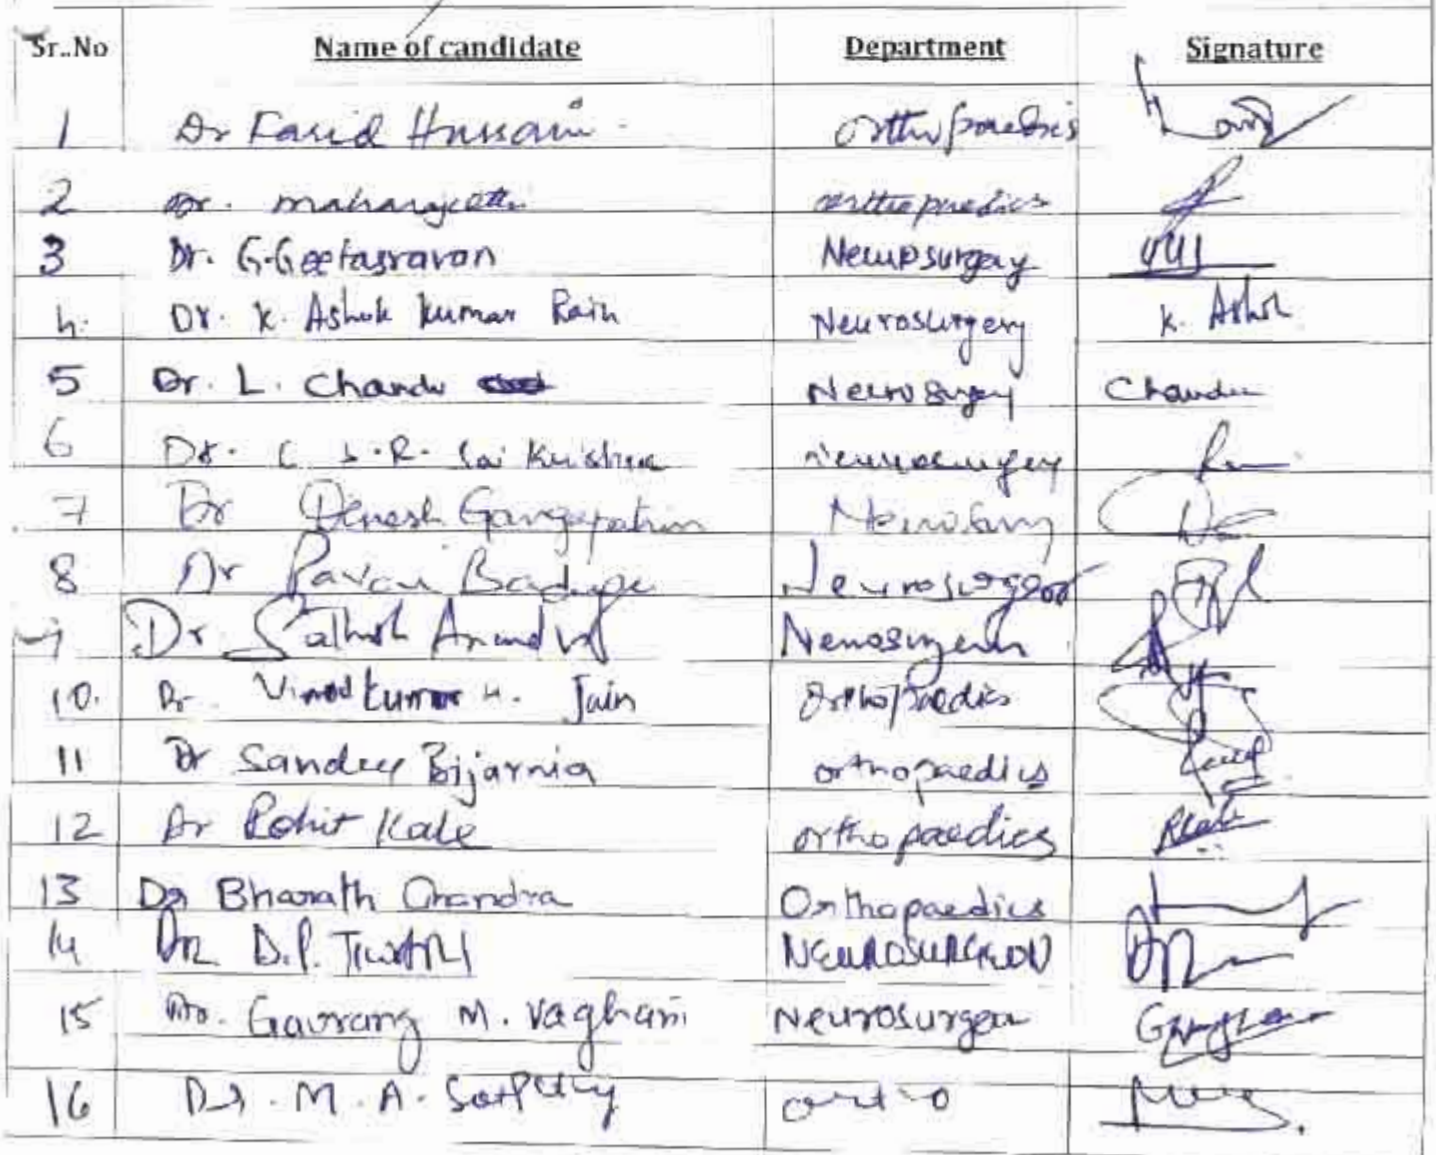 Sr..No Name of candidate Department Signature
1 Dr Farid Hussain orthopaedics
2 Dr. orthopaedics
3 Dr. G.Geetasravan Neurosurgery
4. Dr. K. Ashok Kumar Rain Neurosurgery K. Ashok
5 Dr. L. Chandu Neurosurgery Chandu
6 Dr. C S.R. Sai Krishna neurosurgery
7 Dr Dinesh Neurosurg
8 Dr Pavan Neurosurgeon
9 Dr Sathish Anand Neurosurgeon
10. Dr. Vinod Kumar H. Jain Orthopaedics
11 Dr Sandeep Bijarnia orthopaedics
12 Dr Rohit Kale orthopaedics
13 Dr Bharath Chandra Orthopaedics
14 DR. D.P. TIWARI NEUROSURGEON
15 Dr. Gaurang M. Vaghani Neurosurgeon
16 Dr. M. A. ortho